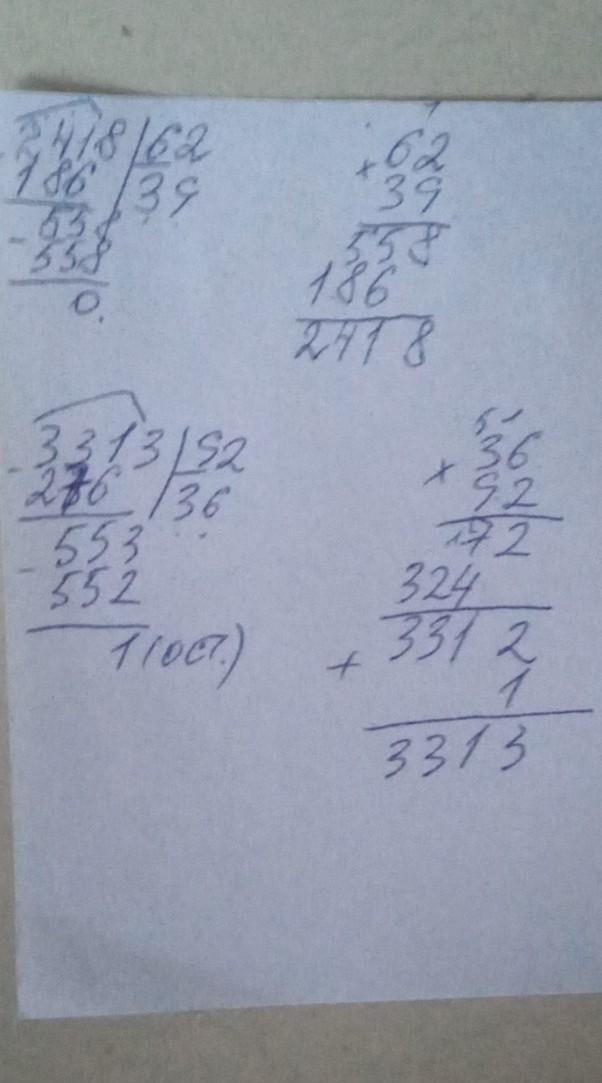 2418 62
186 39
- 558
558
0.
1
× 62
39
558
186
2418
- 3313 92
276 36
- 553
552
1 (ост.)
51
× 36
92
72
324
3312
+ 1
3313